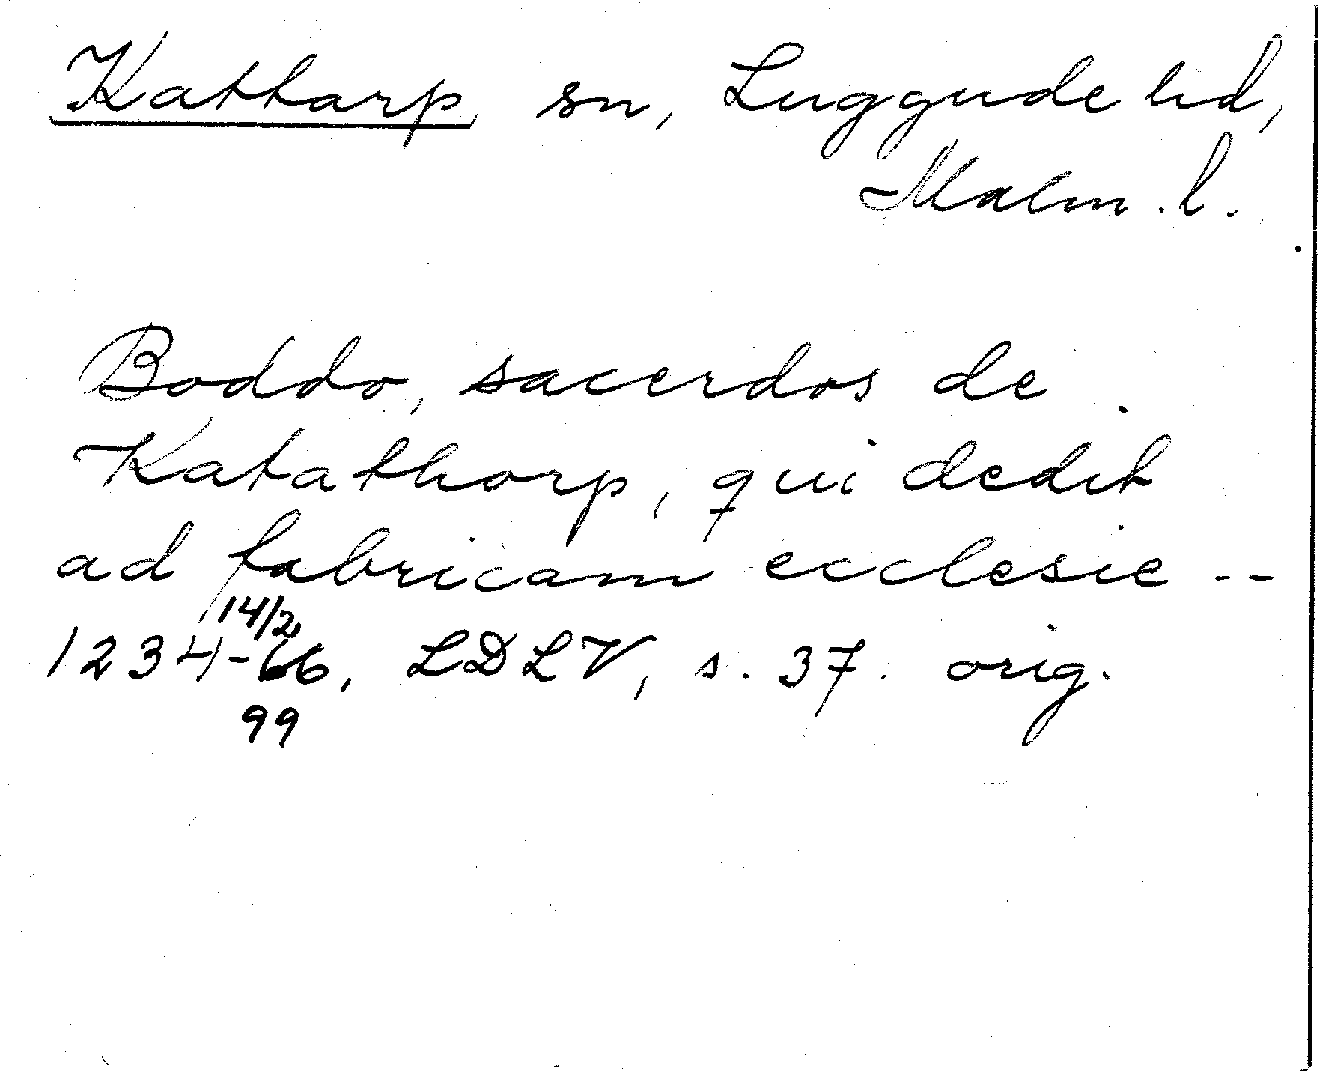 Kattarp sn, Luggude hd,
Malm. l.
Boddo, sacerdos de
Katathorp, qui dedit
ad fabricam ecclesie --
14/2
1234-66, LDLV, s. 37. orig.
99